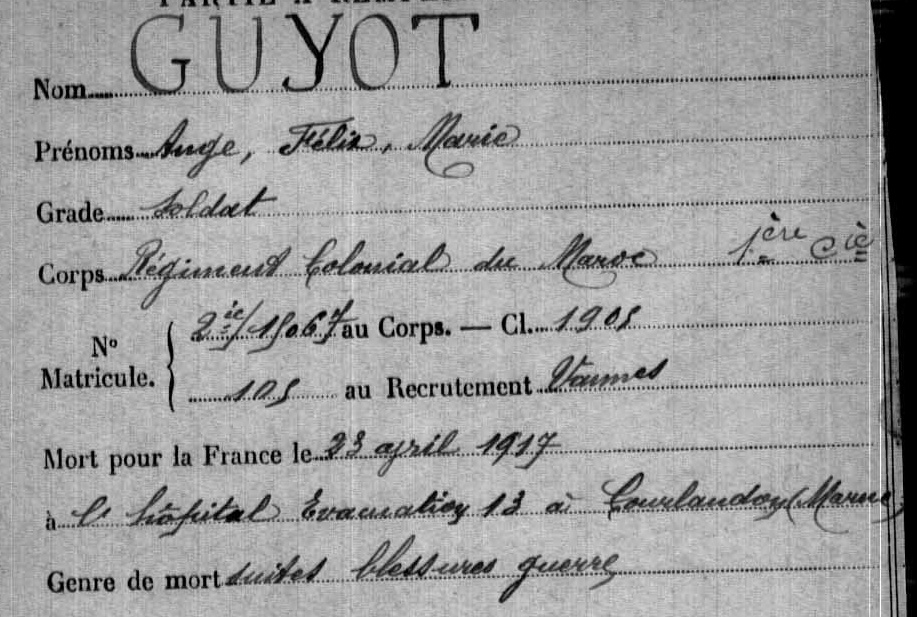 PARTIE À REMPLIR
Nom GUYOT
Prénoms Ange, Félix, Marie
Grade Soldat
Corps Régiment Colonial du Maroc 1ère Cie
N° Matricule. { 2ie/15067 au Corps. — Cl. 1905
105 au Recrutement Vannes
Mort pour la France le 23 avril 1917
à l'hôpital Evacuation 13 à Courlandon (Marne)
Genre de mort suites blessures guerre